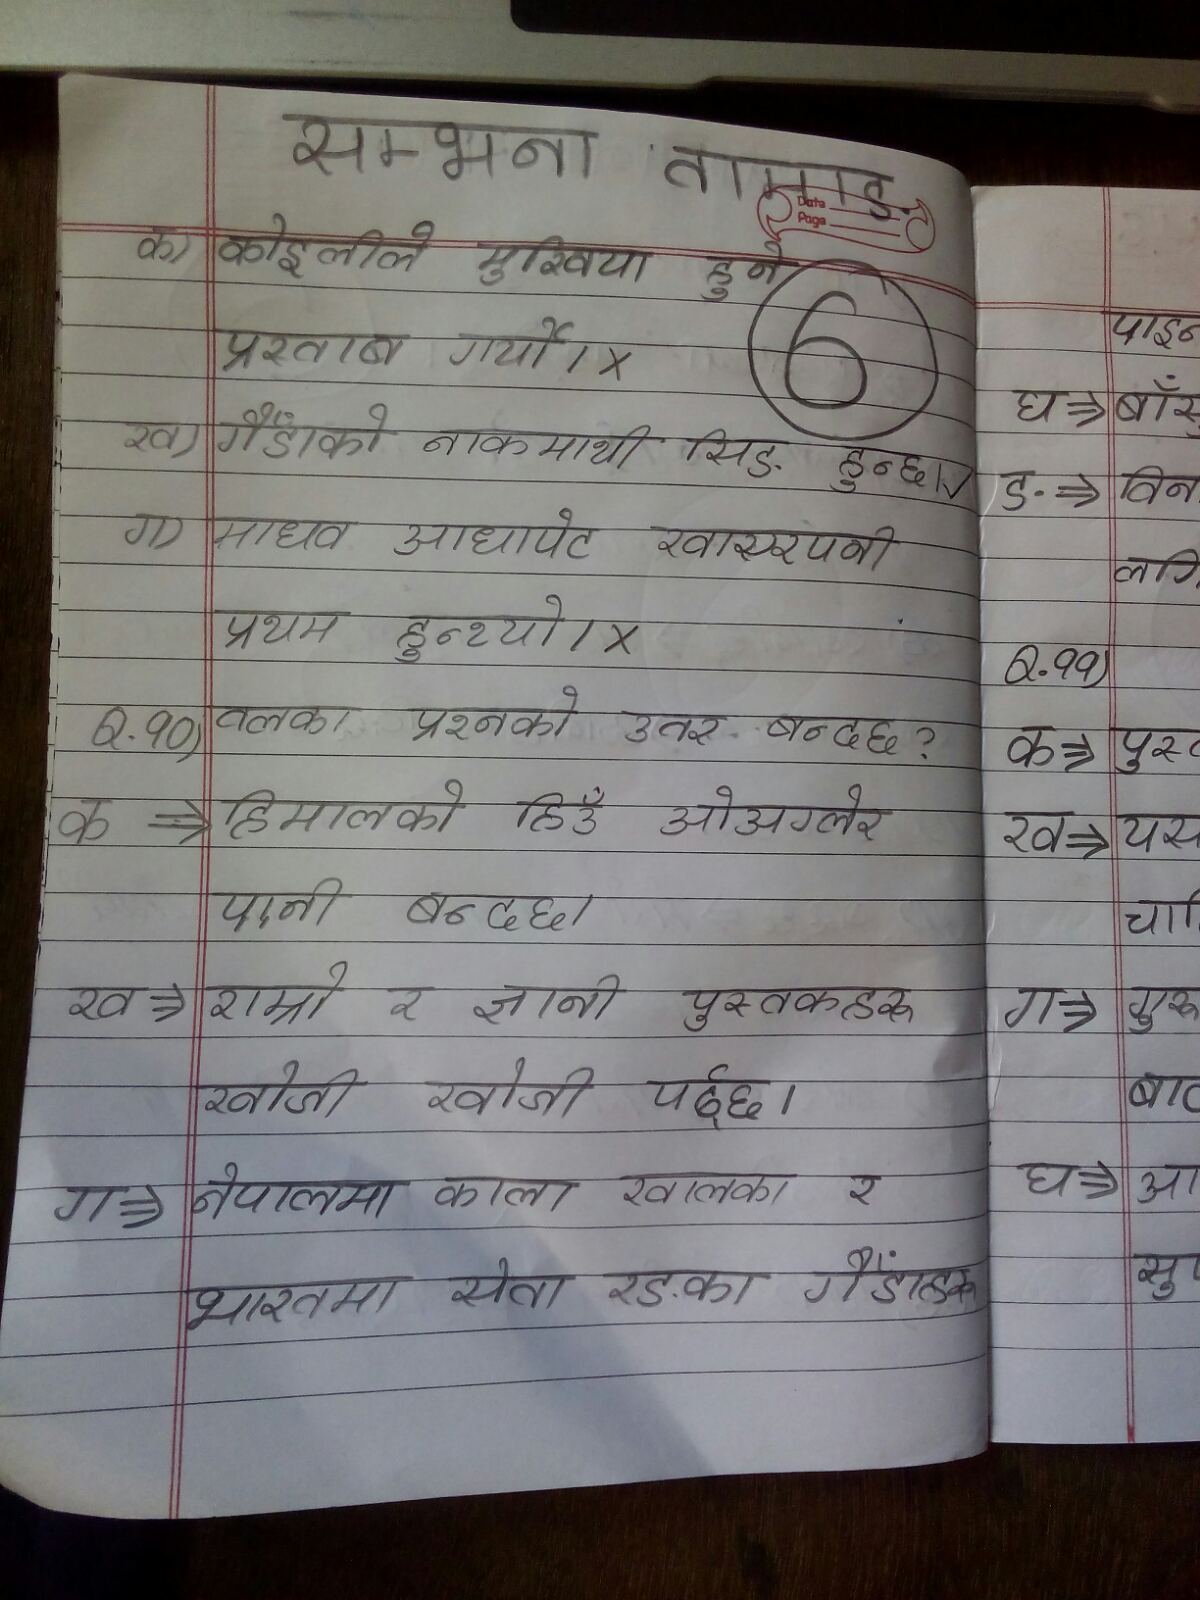 सम्झना तामाङ
Date
Page
6
क) कोइलीले मुखिया हुने
प्रस्ताब गर्यो। ×
ख) गैँडाको नाकमाथी सिङ हुन्छ। ✓
ग) माधव आधापेट खाएरपनी
प्रथम हुन्थ्यो। ×
Q.१०) तलका प्रश्नको उतर बन्दछ?
क ⇒ हिमालको हिउँ ओअग्लेर
पानी बन्दछ।
ख ⇒ राम्रो र ज्ञानी पुस्तकहरू
खोजी खोजी पर्द्छ।
ग ⇒ नेपालमा काला खालका र
भारतमा सेता रङका गैँडाहरू
पाइन
घ ⇒ बाँसु
ङ ⇒ विन
लगि
Q.११)
क ⇒ पुस्त
ख ⇒ यस
चाहि
ग ⇒ गुरू
बाट
घ ⇒ आ
सु